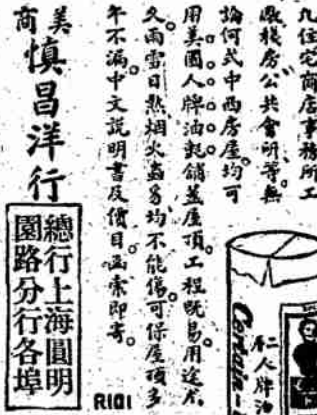 凡住宅商店事務所工
廠棧房公共會所等無
論何式中西房屋均可
用美國人牌油毡舖蓋屋頂工程旣易用途尤
久雨雪日熱烟火均不能傷可保屋頂多
年不漏中文説明書及價目函索即寄。
美商
慎昌洋行
總行上海圓明
園路分行各埠
R101
Certain-
人牌油